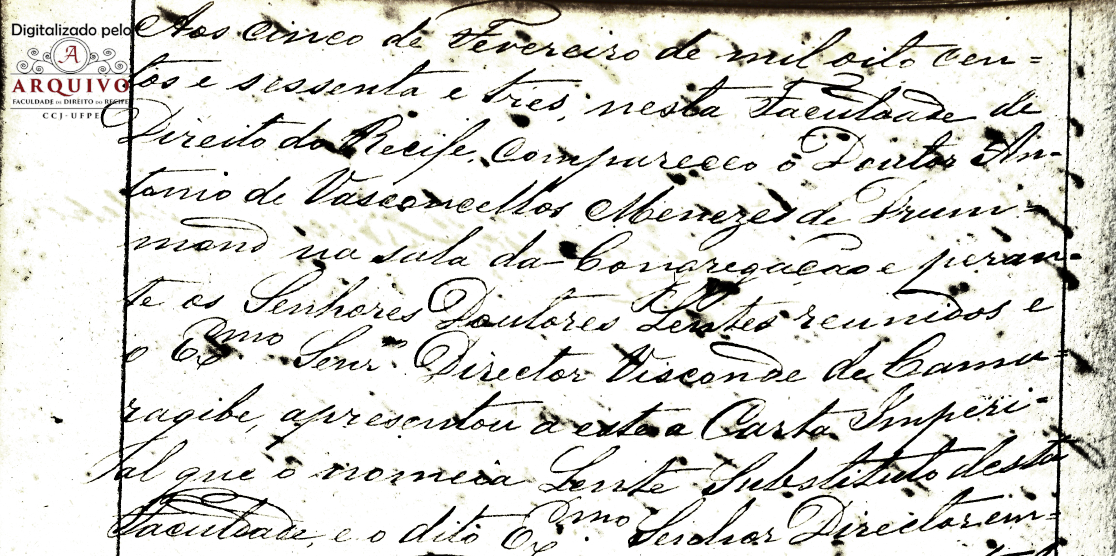 Digitalizado pelo
A
ARQUIVO
FACULDADE DE DIREITO DO RECIFE
CCJ-UFPE
Aos cinco de Fevereiro de mil oito cen=
tos e sessenta e tres, nesta Faculdade de
Direito do Recife, compareceo o Doutor An-
tonio de Vasconcellos Menezes de Drum-
mond na sala da Congregação e peran-
te os Senhores Doutores Lentes reunidos e
o Exmo Senr. Director Visconde de Cama-
ragibe, apresentou a este a Carta Imperi-
al que o nomeia Lente Substituto desta
Faculdade, e o dito Exmo Senhor Director em-